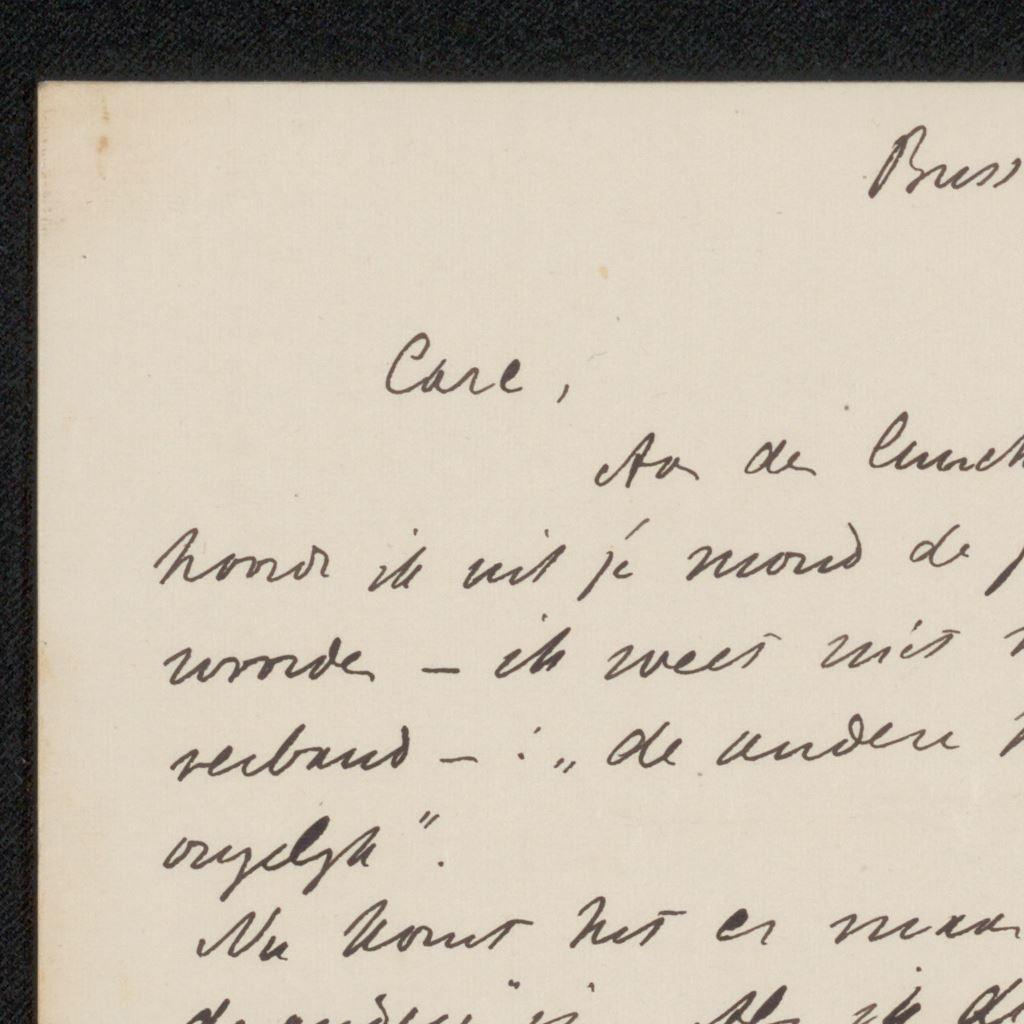 Buss
Care,
Aan de lunch
hoorde ik uit je mond de
woorden – ik weet niet
verband – : „de andere
ongelijk".
Nu komt het er maar
de andere" is. Als ik de